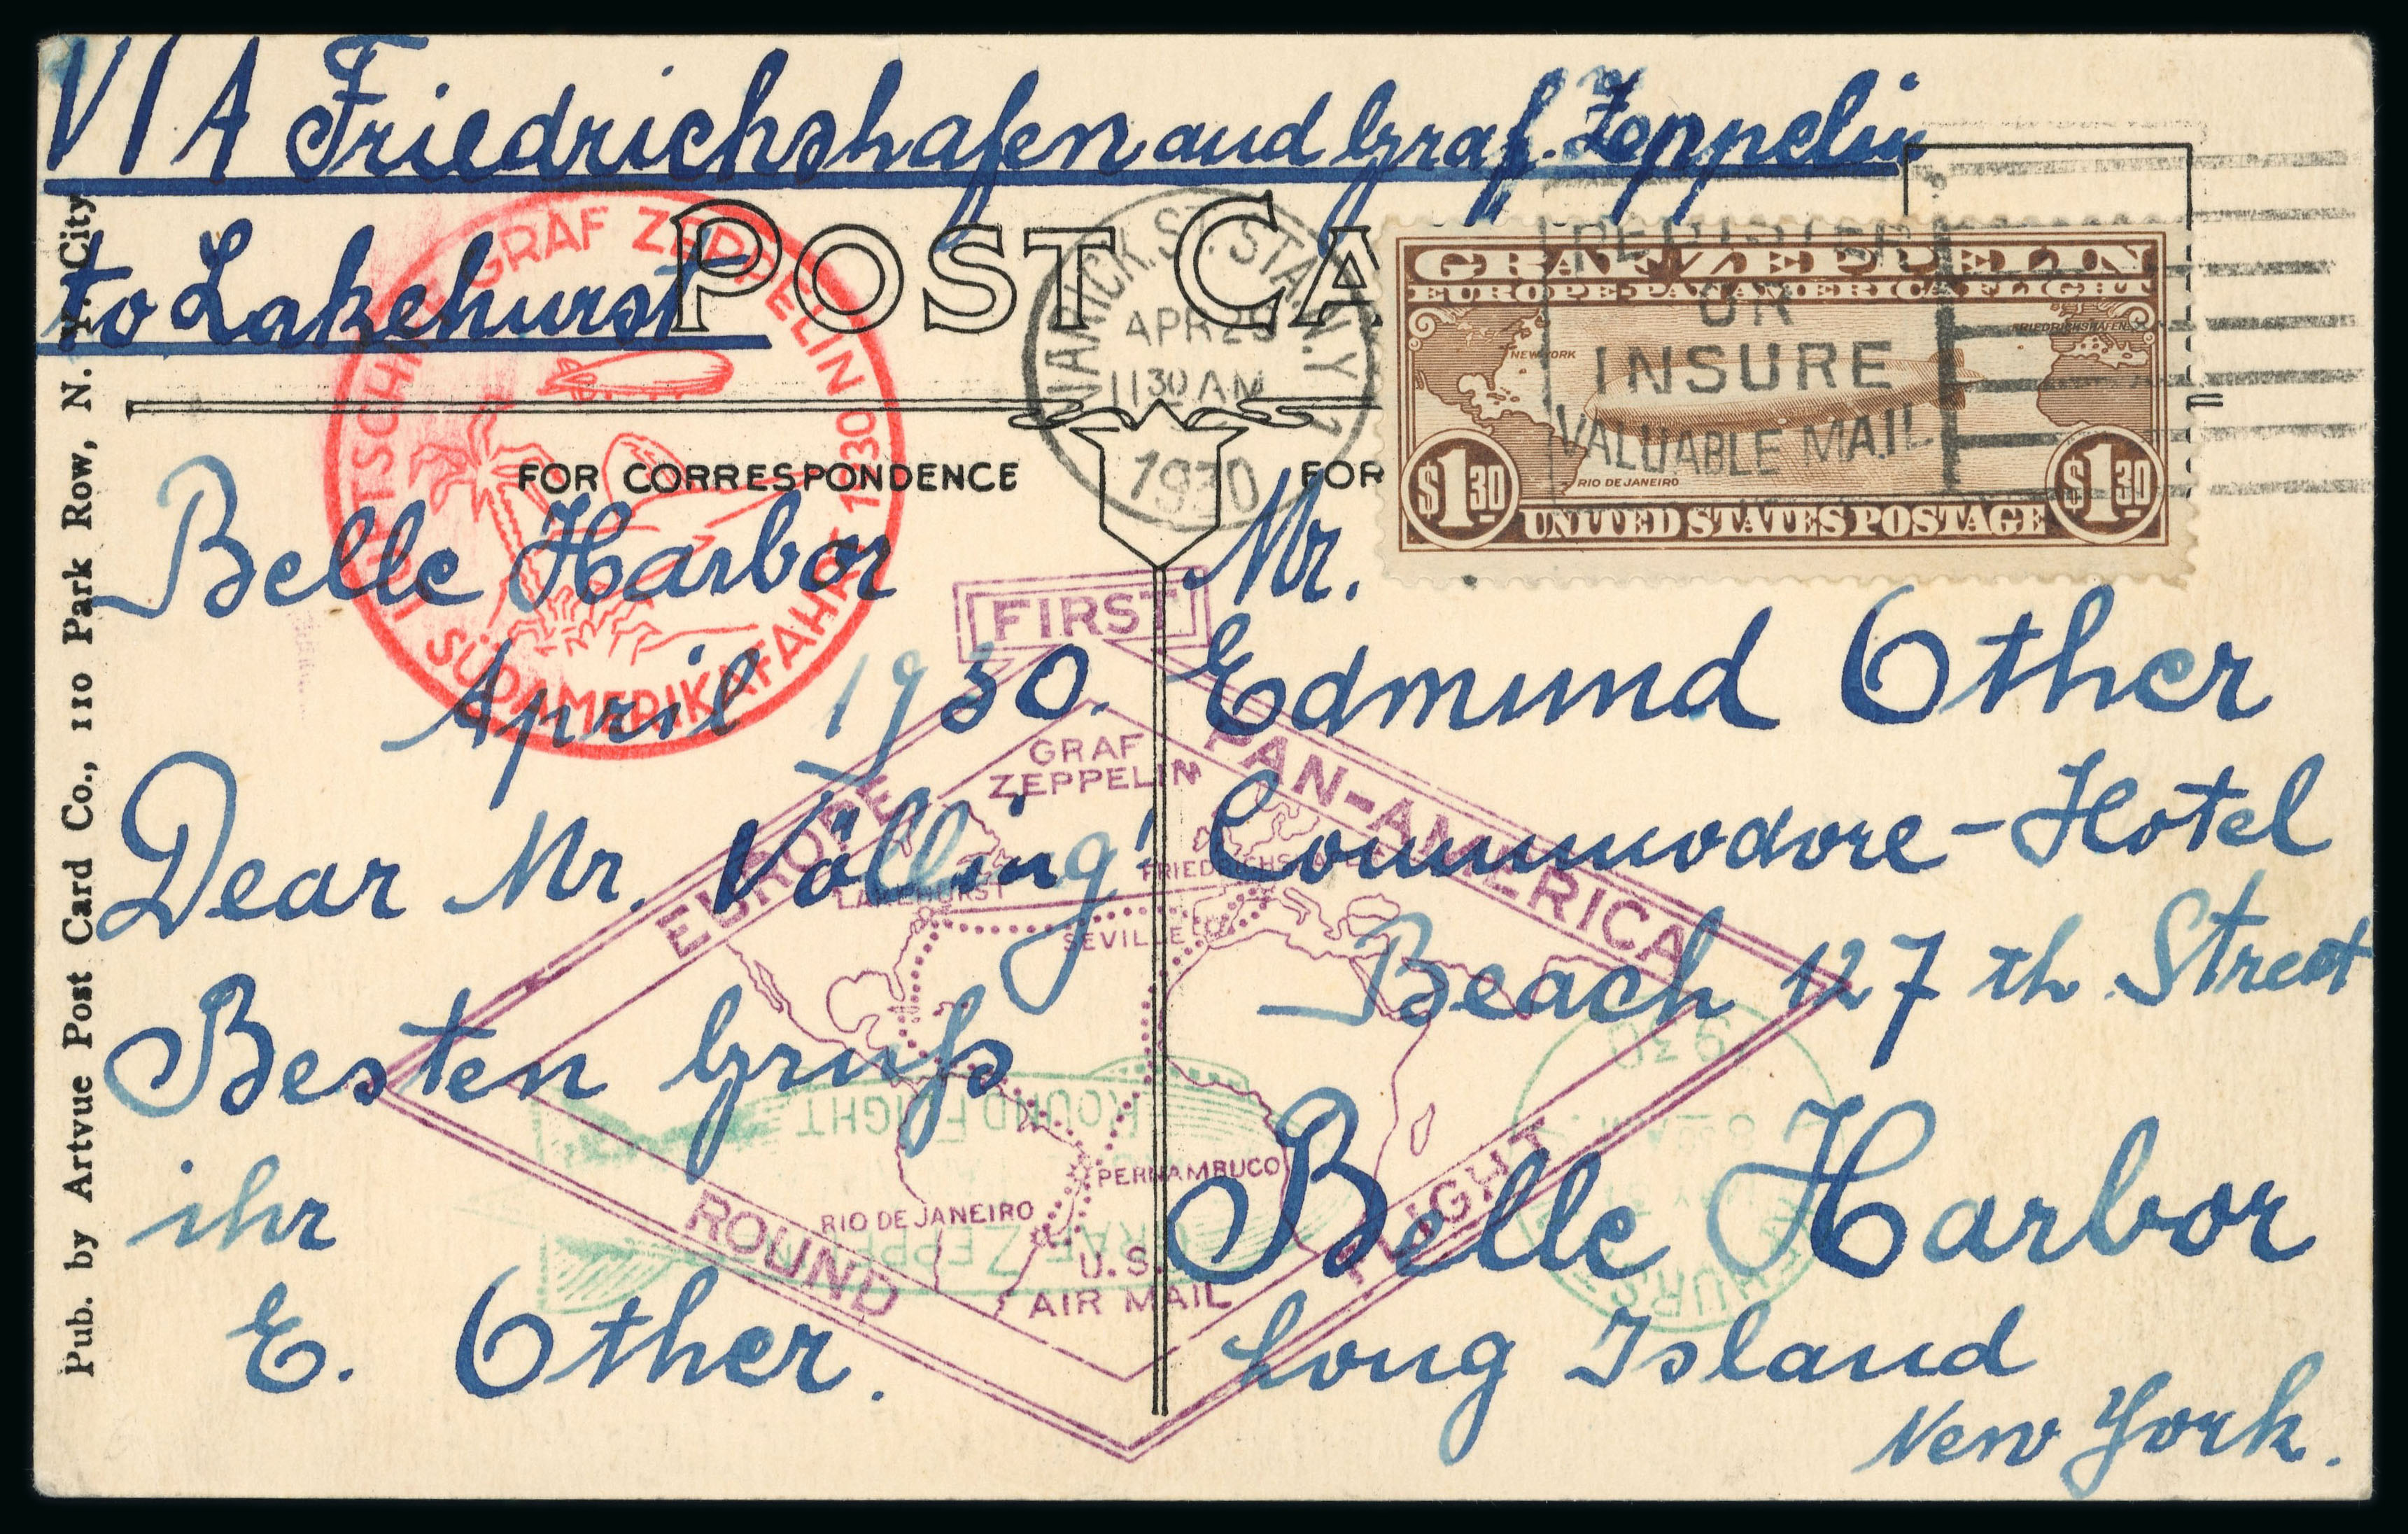 VIA Friedrichshafen and Graf. Zeppelin
to Lakehurst
POST CA
LUFTSCHIFF GRAF ZEPPELIN
SÜDAMERIKAFAHRT 1930
VARICK. ST. STA. N.Y.
APR 25
1130 AM
1930
REGISTER
OR
INSURE
VALUABLE MAIL
GRAF ZEPPELIN
EUROPE-PAN AMERICA FLIGHT
NEW YORK
FRIEDRICHSHAFEN
RIO DE JANEIRO
$1 30
$1 30
UNITED STATES POSTAGE
FOR CORRESPONDENCE
FOR
Belle Harbor
April 1930.
Dear Mr. Völling!
Besten Gruß
ihr
E. Other.
Mr.
Edmund Other
Commodore-Hotel
Beach 127 th Street
Belle Harbor
Long Island
New York.
FIRST
EUROPE
PAN-AMERICA
GRAF
ZEPPELIN
LAKEHURST
FRIEDRICHSHAFEN
SEVILLE
PERNAMBUCO
RIO DE JANEIRO
ROUND
FLIGHT
U.S.
AIR MAIL
GRAF ZEPPELIN
ROUND FLIGHT
Pub. by Artvue Post Card Co., 110 Park Row, N. Y. City